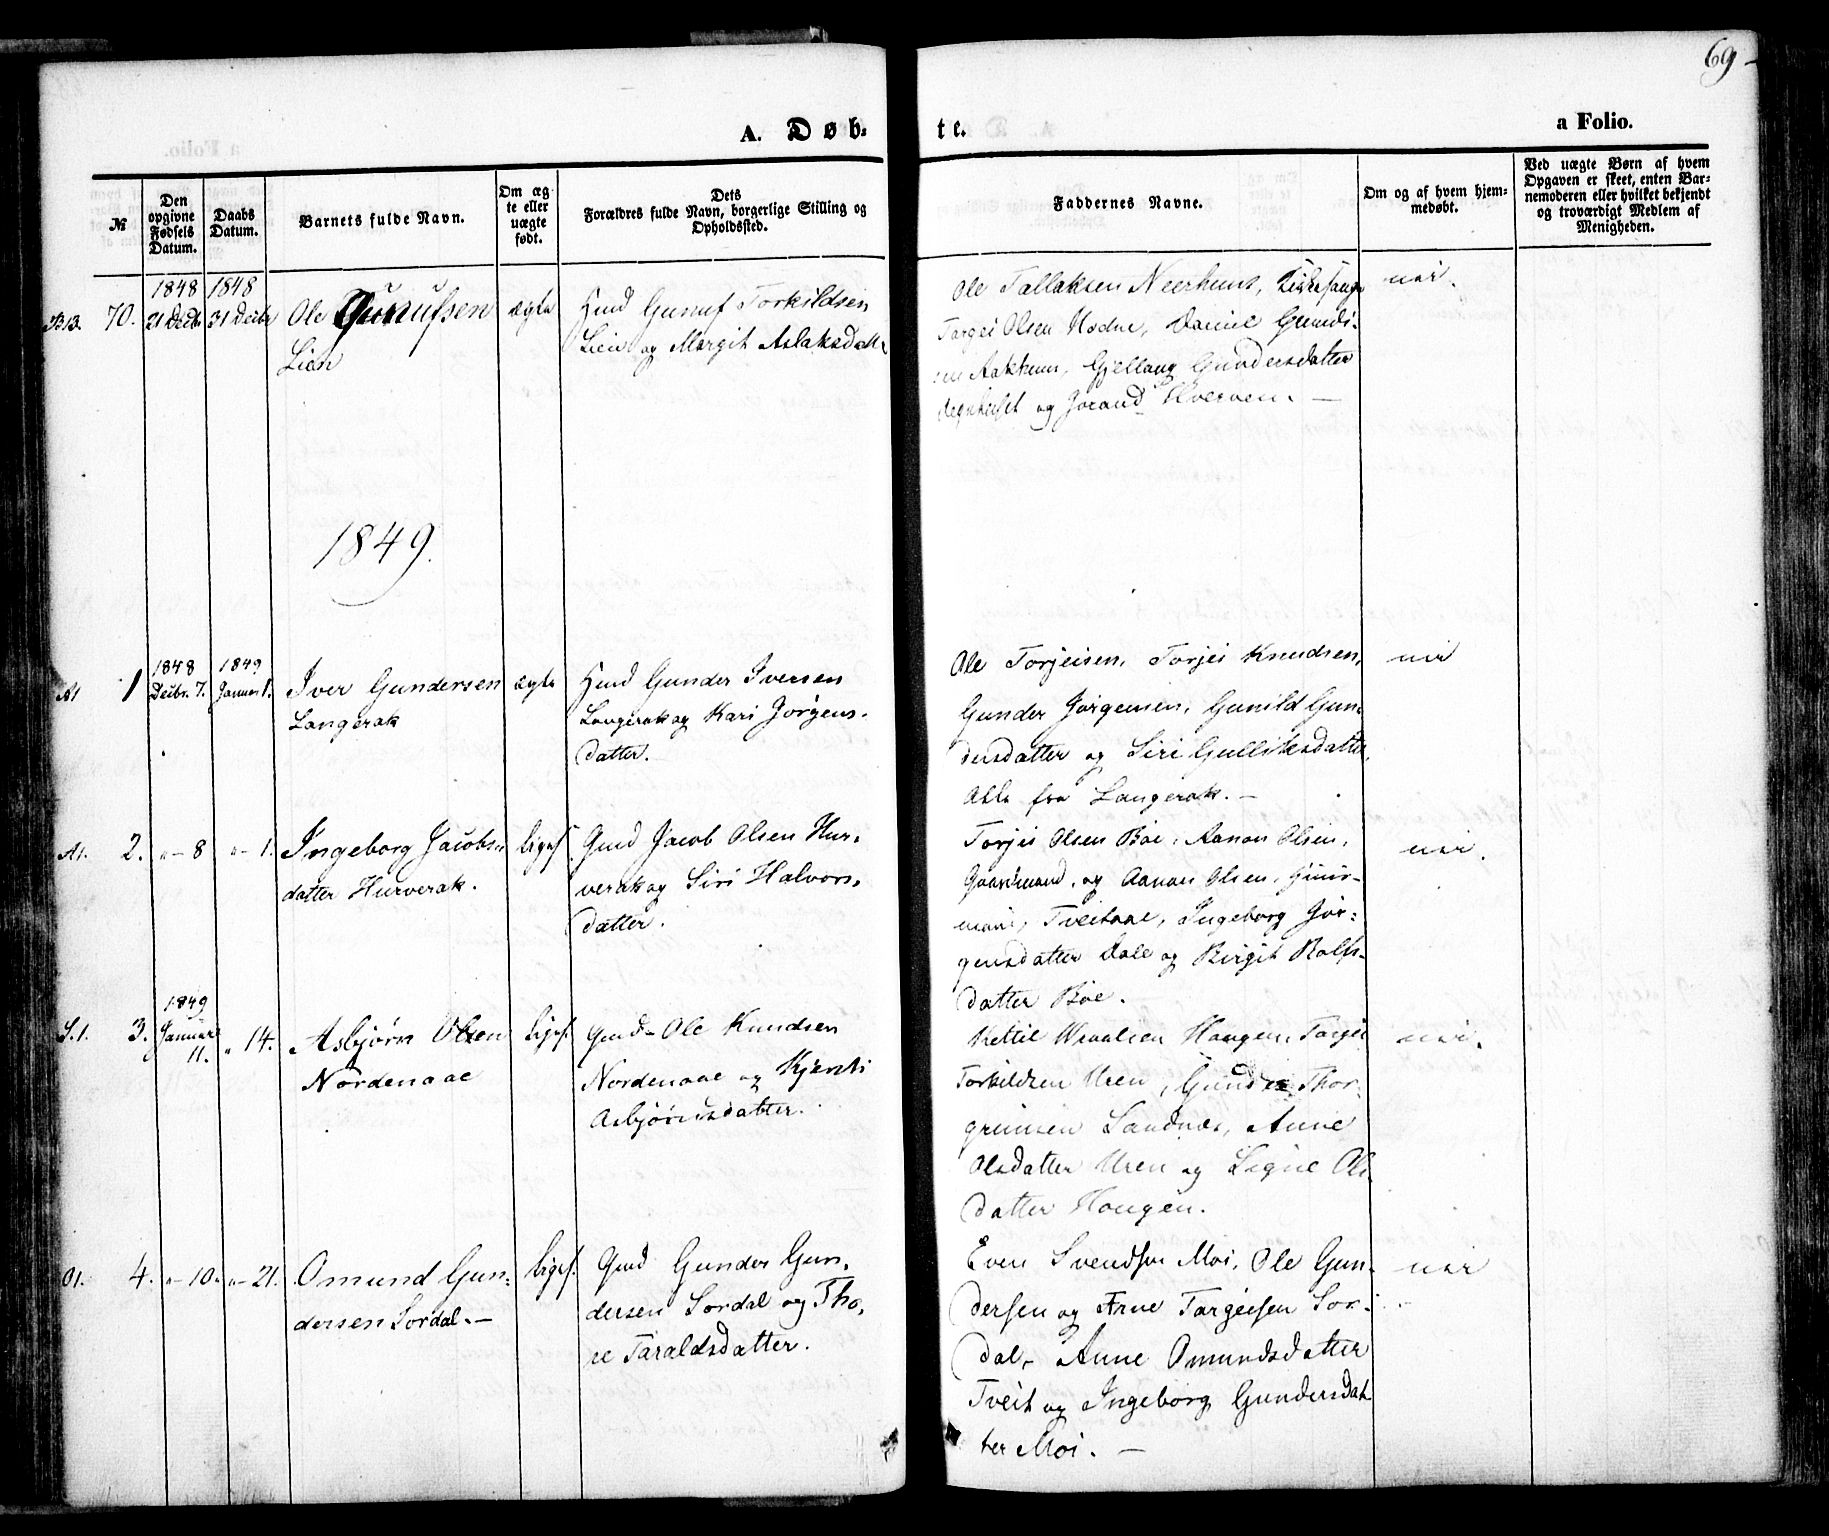 69
A. Døb-
te.
a Folio.
№
Den opgivne Fødsels Datum.
Daabs Datum.
Barnets fulde Navn.
Om ægte eller uægte født.
Dets
Forældres fulde Navn, borgerlige Stilling og
Opholdssted.
Faddernes Navne.
Om og af hvem hjem-
medøbt.
Ved uægte Børn af hvem
Opgaven er skeet, enten Bar-
nemoderen eller hvilket bekjendt
og troværdigt Medlem af
Menigheden.
B13. 70.
1848
21 Decbr
1848
31 Decbr
Ole Gunufsen
Lien
ægte
Gmd Gunuf Torkildsen
Lien og Margit Aslaksdatt
Ole Tallaksen Neerhuns, Kirkesanger
Torgei Olsen Hodne, Daniel Gumdi-
sen Aakhuus, Gjellaug Gundersdatter
degnhuset og Jorand Kverven. —
nei.
1849.
A1 1
1848
Decbr. 7.
1849
Januar 1.
Iver Gundersen
Langerak
ægte
Gmd Gunder Iversen
Langerak og Kari Jørgens-
datter.
Ole Torjeisen, Torjei Knudsen,
Gunder Jørgensen, Gunild Gun-
dersdatter og Siri Gulliksdatter,
Alle fra Langerak. —
nei
A1. 2. "– 8 "– 1.
Ingeborg Jacobs-
datter Hurverak.
liges.
Gmd Jacob Olsen Hur-
verak og Siri Halvors-
datter.
Torjei Olsen Bøe, Aanon Olsen,
Gaardmand, og Aanon Olsen, Huus-
mand, Tveitaae, Ingeborg Jør-
gensdatter Dale og Birgit Rolfs-
datter Bøe.
nei.
S.1. 3.
1849
Januar
11.
" 14.
Asbjørn Olsen
Nordenaae
ligs.
Gmd Ole Knudsen
Nordenaae og Kjersti
Asbjørnsdatter.
Kettil Nevalsen Haugen, Torgei
Torkildsen Uren, Gunder Thor-
grimsen Sandnes, Anne
Olsdatter Uren og Signe Ols-
datter Hougen.
nei.
O1. 4. "– 10. "– 21.
Omund Gun-
dersen Sordal. —
ligs.
Gmd Gunder Gun-
dersen Sordal og Tho-
re Taraldsdatter.
Even Svendsen Moi, Ole Gun-
dersen og Arne Targeisen Sor-
dal, Anne Omundsdatter
Tveit og Ingeborg Gundersdat-
ter Moi. —
nei